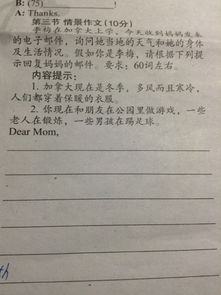 B: (75)
A: Thanks.
第三节 情景作文(10分)
李梅在加拿大上学，今天收到妈妈发来
的电子邮件，询问她当地的天气和她的身体
及生活情况。假如你是李梅，请根据下列提
示回复妈妈的邮件。要求：60词左右。
内容提示：
1. 加拿大现在是冬季，多风而且寒冷，
人们都穿着保暖的衣服。
2. 你现在和朋友在公园里做游戏，一些
老人在锻炼，一些男孩在踢足球。
Dear Mom,
th